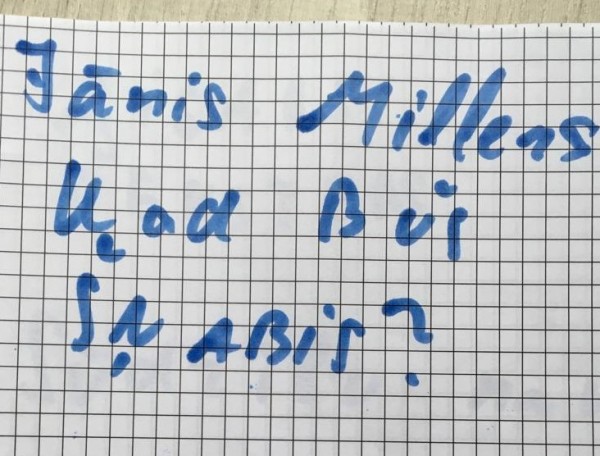 Jānis Millens
Ķad Bus
SŅABIS?